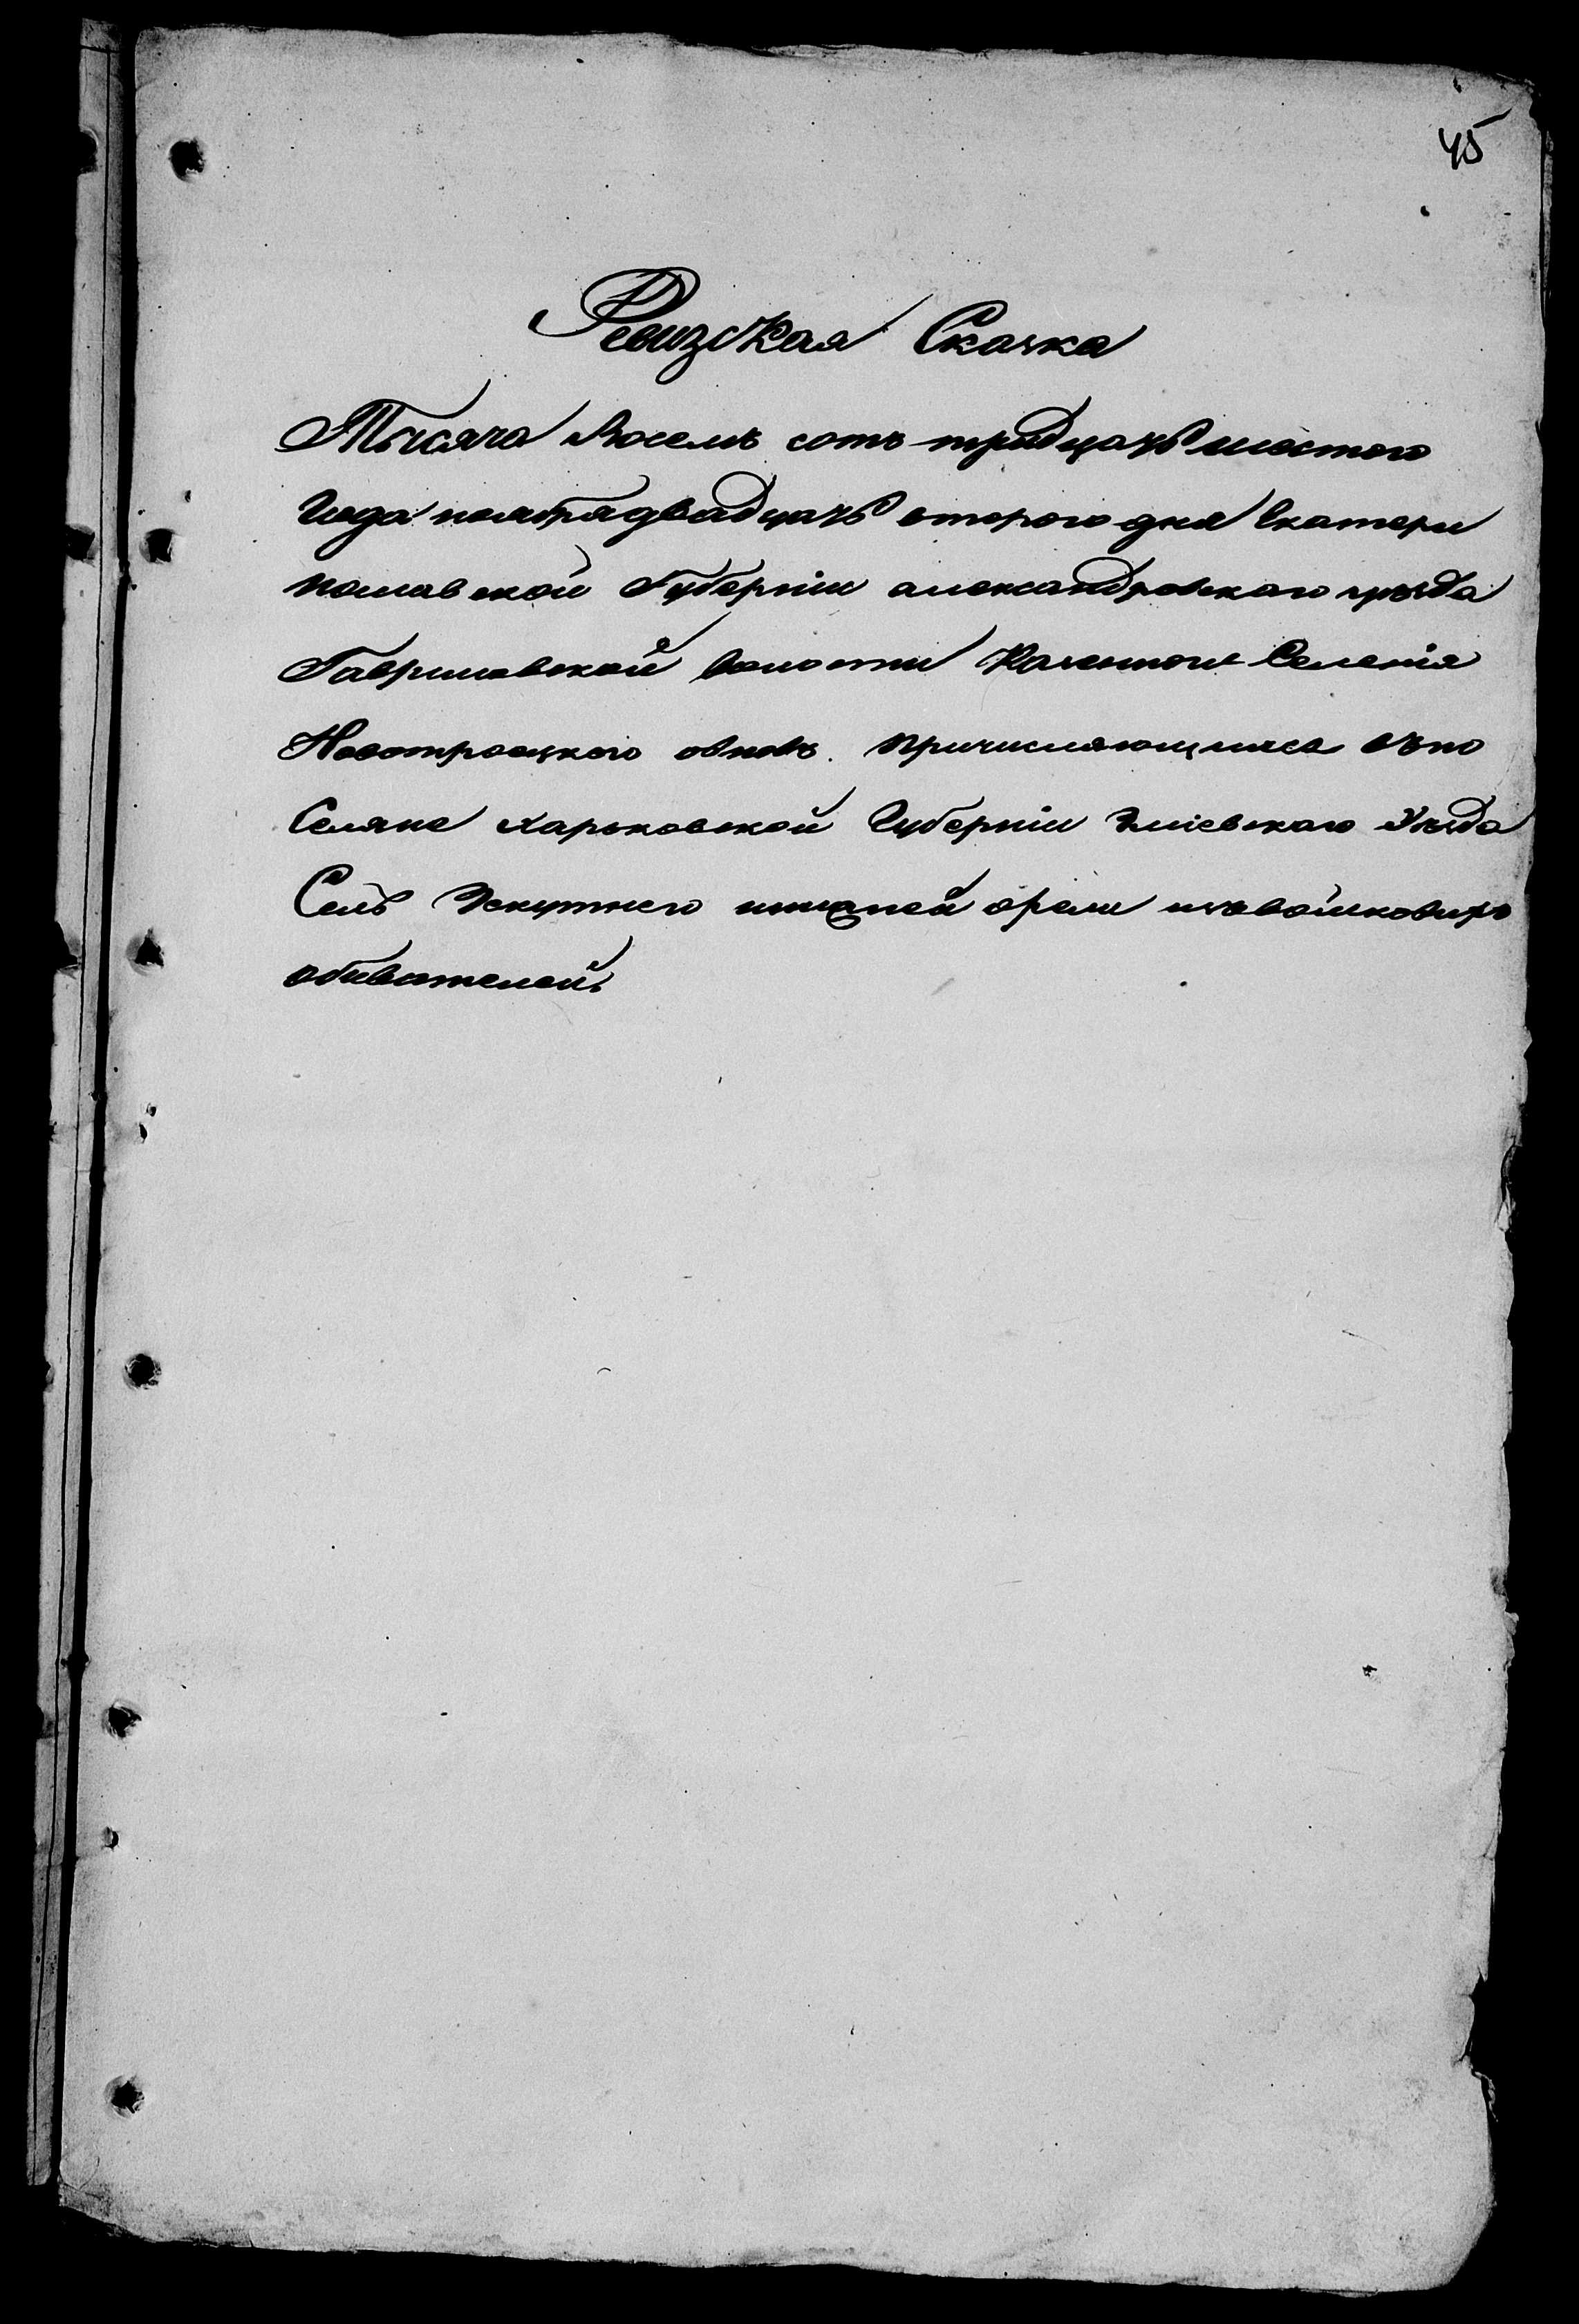 45
Ревизская Сказка
Тысяча восемь сотъ тридцать шестого
Года ноября двадцать второго дня Екатери
нославской Губерніи александровскаго уезда
Гавриловской волости Казенного Селенія
Новотроецкого овновь причисляющихся въпо
Селяне харьковской Губерніи Зміевскаго Уезда
Селъ Искутнего орели извойсковихъ
обивателей.